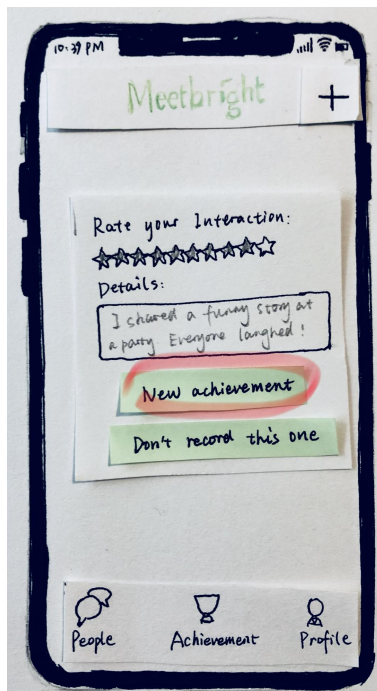 10:39 PM
Meetbright
+
Rate your Interaction:
Details:
I shared a funny story at
a party Everyone laughed!
New achievement
Don't record this one
People
Achievement
Profile